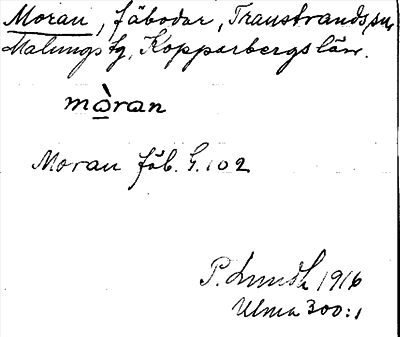 Moran, fäbodar, Transtrands sn,
Malungs tg, Kopparbergs län.
mò̲ran
Moran fäb. G. 102
P. Lundh 1916
Ulma 300:1